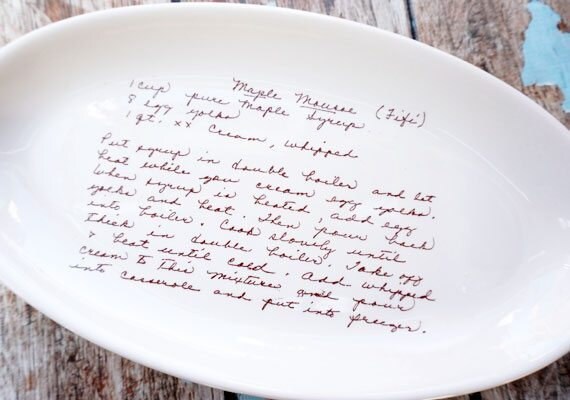 Maple Mousse (Fifi)
1 cup pure Maple Syrup
8 egg yolks
1 qt. xx Cream, whipped
Put syrup in double boiler and let
heat while you cream egg yolks.
When syrup is heated, add egg
yolks and heat. Then pour back
into boiler. Cook slowly until
thick in double boiler. Take off
& beat until cold. Add whipped
cream to this mixture and pour
into casserole and put into freezer.